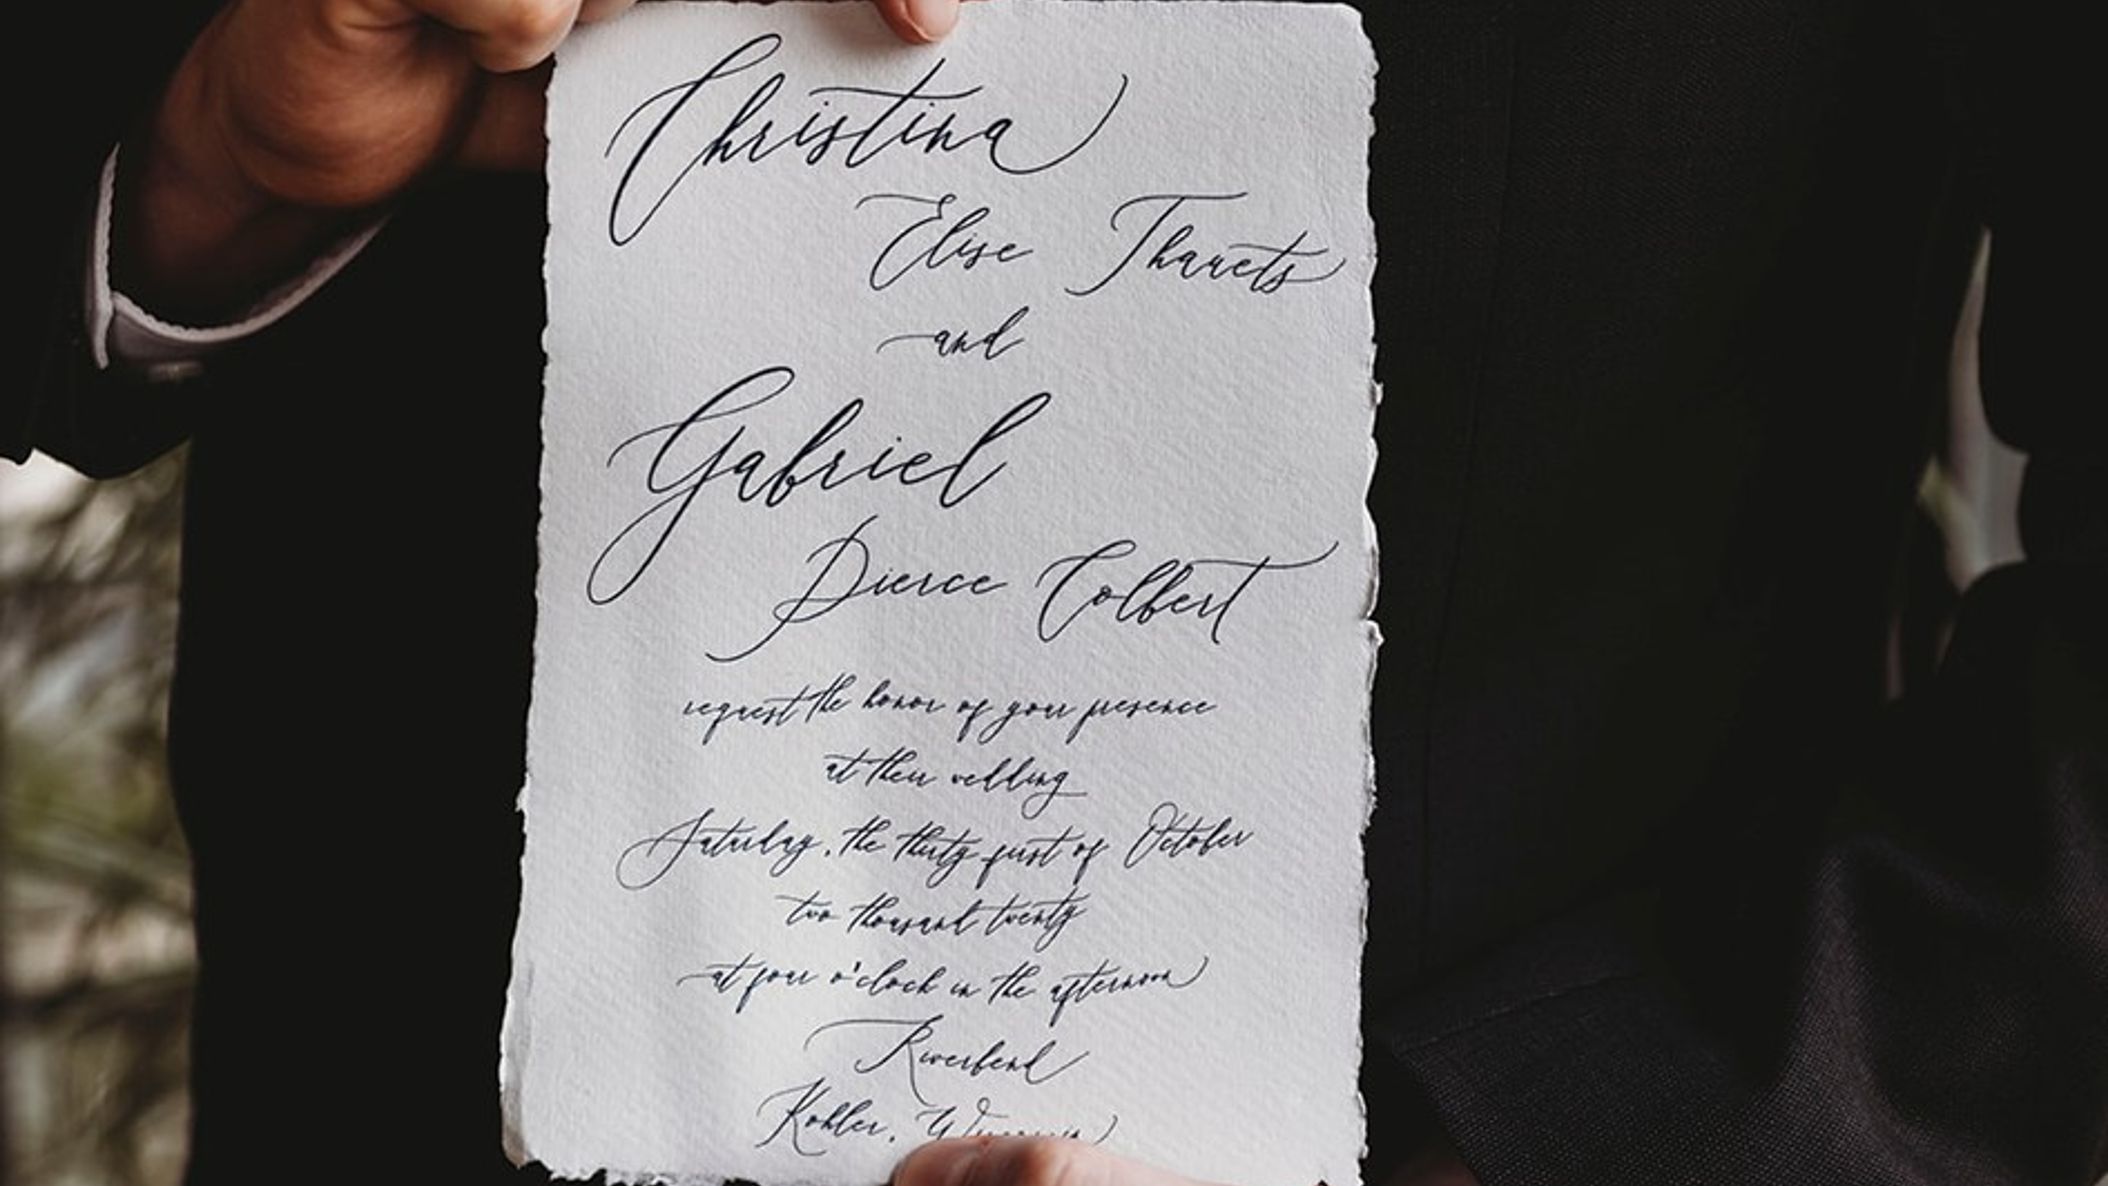 Christina
Elise Thauets
and
Gabriel
Pierce Colbert
request the honor of your presence
at their wedding
Saturday, the thirty-first of October
two thousand twenty
at four o'clock in the afternoon
Riverbend
Kohler, Wisconsin